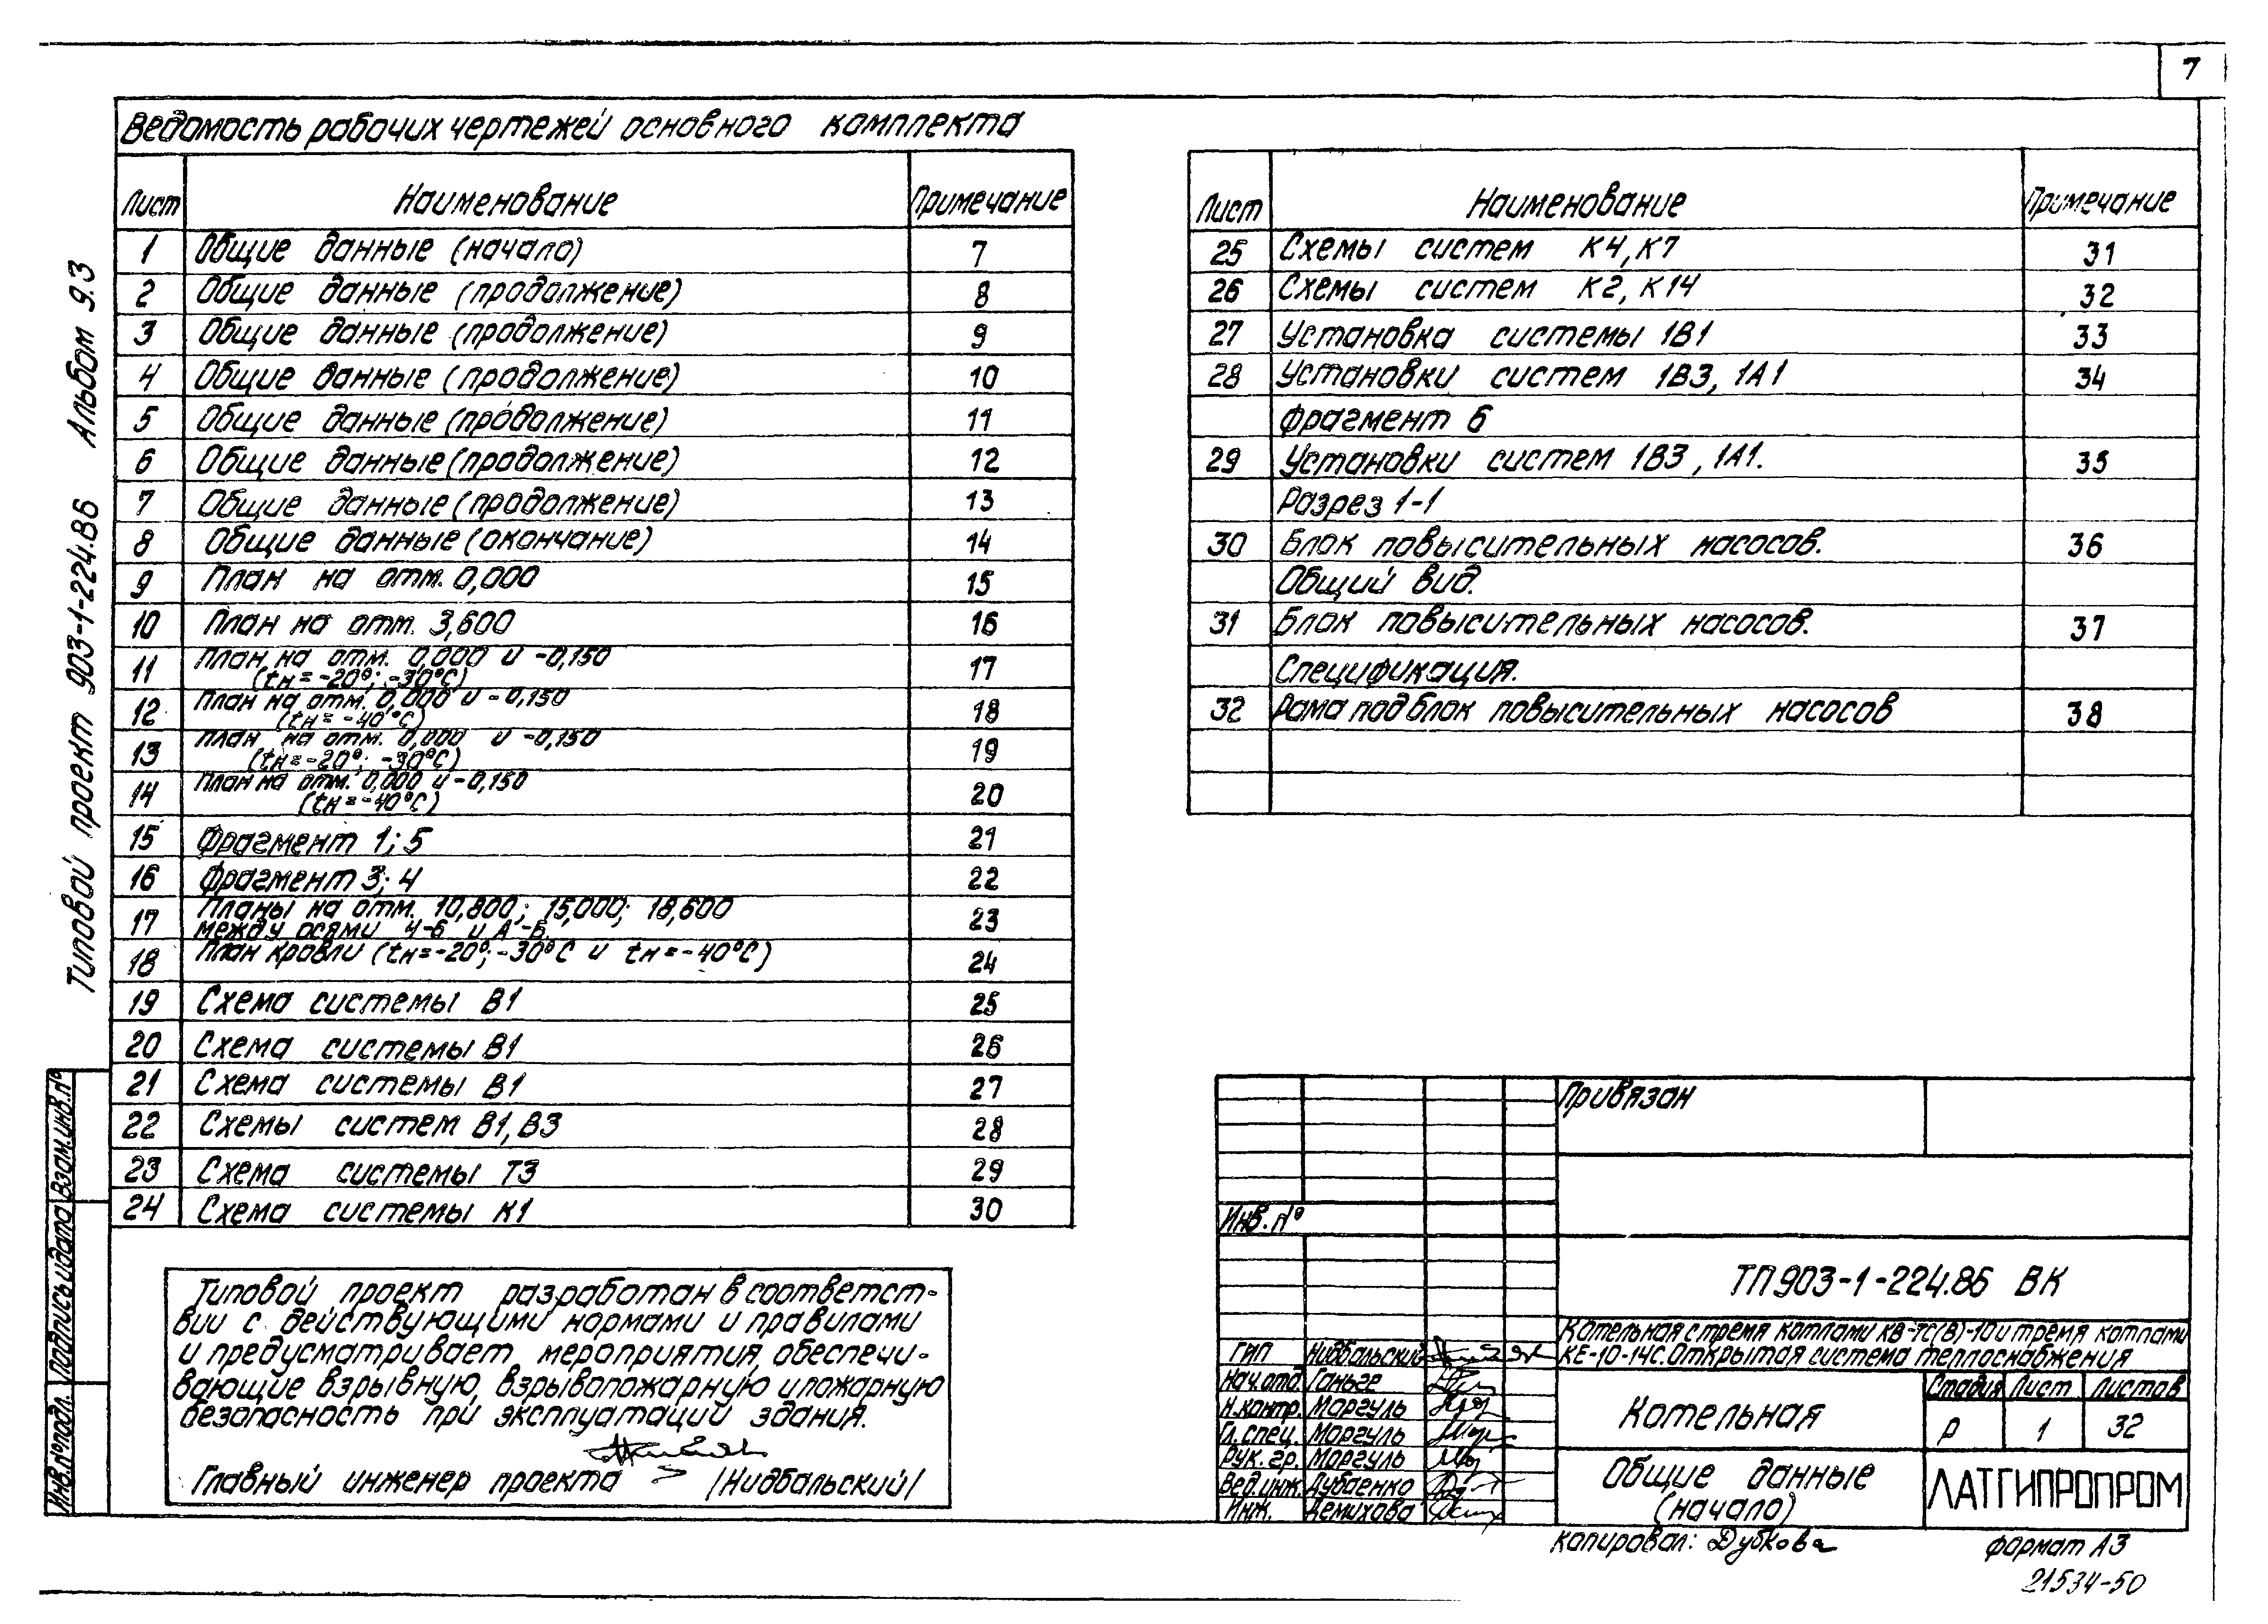 7
Ведомость рабочих чертежей основного комплекта
Лист Наименование Примечание
1 Общие данные (начало) 7
2 Общие данные (продолжение) 8
3 Общие данные (продолжение) 9
4 Общие данные (продолжение) 10
5 Общие данные (продолжение) 11
6 Общие данные (продолжение) 12
7 Общие данные (продолжение) 13
8 Общие данные (окончание) 14
9 План на отм. 0,000 15
10 План на отм. 3,600 16
11 План на отм. 0,000 и -0,150 17
(tн=-20°; -30°С)
12 План на отм. 0,000 и -0,150 18
(tн=-40°С)
13 План на отм. 0,000 и -0,150 19
(tн=-20°; -30°С)
14 План на отм. 0,000 и -0,150 20
(tн=-40°С)
15 Фрагмент 1; 5 21
16 Фрагмент 3; 4 22
17 Планы на отм. 10,800; 15,000; 18,600 23
между осями 4-6 и А-Б
18 План кровли (tн=-20°; -30°С и tн=-40°С) 24
19 Схема системы В1 25
20 Схема системы В1 26
21 Схема системы В1 27
22 Схемы систем В1, В3 28
23 Схема системы Т3 29
24 Схема системы К1 30
Лист Наименование Примечание
25 Схемы систем К4, К7 31
26 Схемы систем К2, К14 32
27 Установка системы 1В1 33
28 Установки систем 1В3, 1А1 34
Фрагмент 6
29 Установки систем 1В3, 1А1. 35
Разрез 1-1
30 Блок повысительных насосов. 36
Общий вид.
31 Блок повысительных насосов. 37
Спецификация.
32 Рама под блок повысительных насосов 38
Типовой проект 903-1-224.86 Альбом 9.3
Инв.№подл. Подпись и дата Взам.инв.№
Типовой проект разработан в соответст-
вии с действующими нормами и правилами
и предусматривает мероприятия, обеспечи-
вающие взрывную, взрывопожарную и пожарную
безопасность при эксплуатации здания.
Главный инженер проекта /Нидбальский/
Привязан
Инв.№
ТП 903-1-224.86 ВК
Котельная с тремя котлами КВ-ТС(В)-10 и тремя котлами
КЕ-10-14С. Открытая система теплоснабжения
ГИП Нидбальский
Нач.отд. Ганьге
Н.контр. Моргуль
Гл.спец. Моргуль
Рук.гр. Моргуль
Вед.инж. Дубаенко
Инж. Демихова
Котельная
Стадия Лист Листов
Р 1 32
Общие данные
(начало)
ЛАТГИПРОПРОМ
Копировал: Дубкова
Формат А3
21534-50